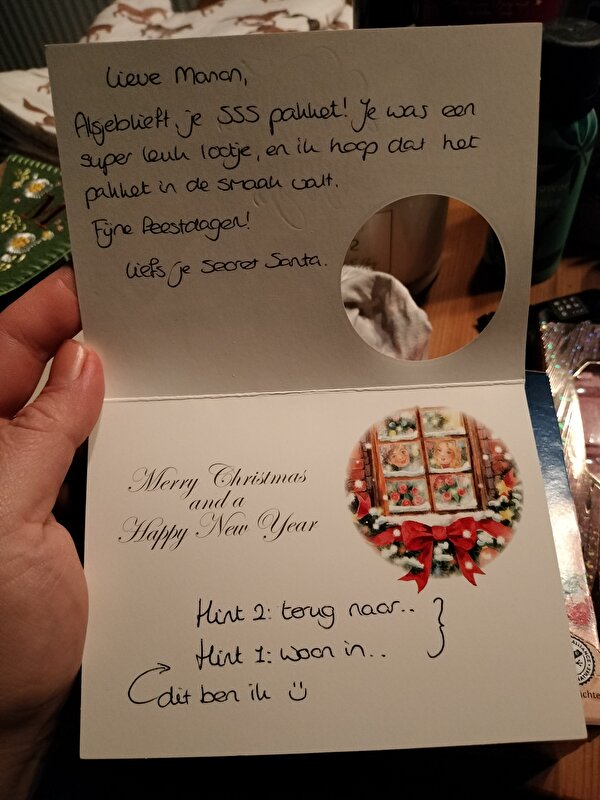 Lieve Manon,
Alsjeblieft, je SSS pakket! Je was een
super leuk lootje, en ik hoop dat het
pakket in de smaak valt.
Fijne feestdagen!
Liefs je Secret Santa.
Merry Christmas
and a
Happy New Year
Hint 2: terug naar..
Hint 1: woon in..
dit ben ik